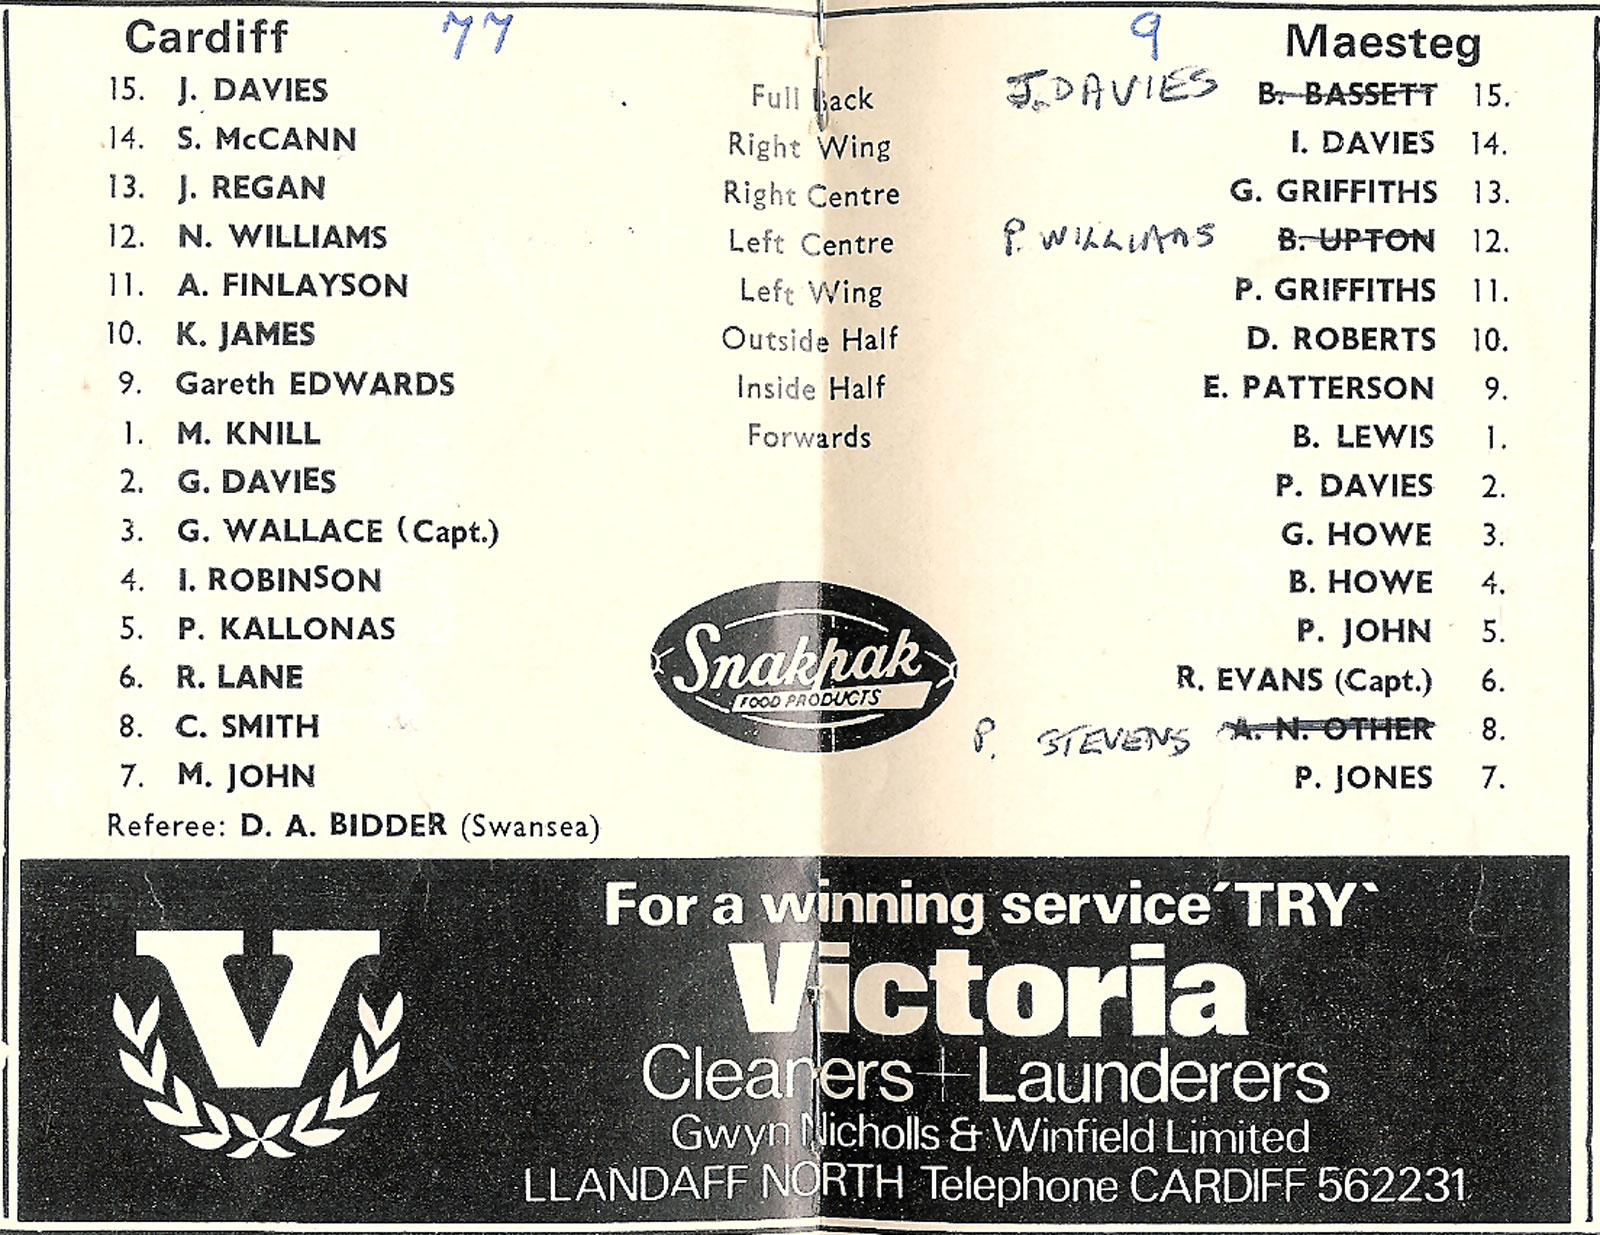 Cardiff 77 9 Maesteg
15. J. DAVIES Full Back J. DAVIES B. BASSETT 15.
14. S. McCANN Right Wing I. DAVIES 14.
13. J. REGAN Right Centre G. GRIFFITHS 13.
12. N. WILLIAMS Left Centre P. WILLIAMS B. UPTON 12.
11. A. FINLAYSON Left Wing P. GRIFFITHS 11.
10. K. JAMES Outside Half D. ROBERTS 10.
9. Gareth EDWARDS Inside Half E. PATTERSON 9.
1. M. KNILL Forwards B. LEWIS 1.
2. G. DAVIES P. DAVIES 2.
3. G. WALLACE (Capt.) G. HOWE 3.
4. I. ROBINSON B. HOWE 4.
5. P. KALLONAS P. JOHN 5.
6. R. LANE R. EVANS (Capt.) 6.
8. C. SMITH P. STEVENS A. N. OTHER 8.
7. M. JOHN P. JONES 7.
Snakpak
FOOD PRODUCTS
Referee: D. A. BIDDER (Swansea)
V
For a winning service ´TRY`
Victoria
Cleaners + Launderers
Gwyn Nicholls & Winfield Limited
LLANDAFF NORTH Telephone CARDIFF 562231